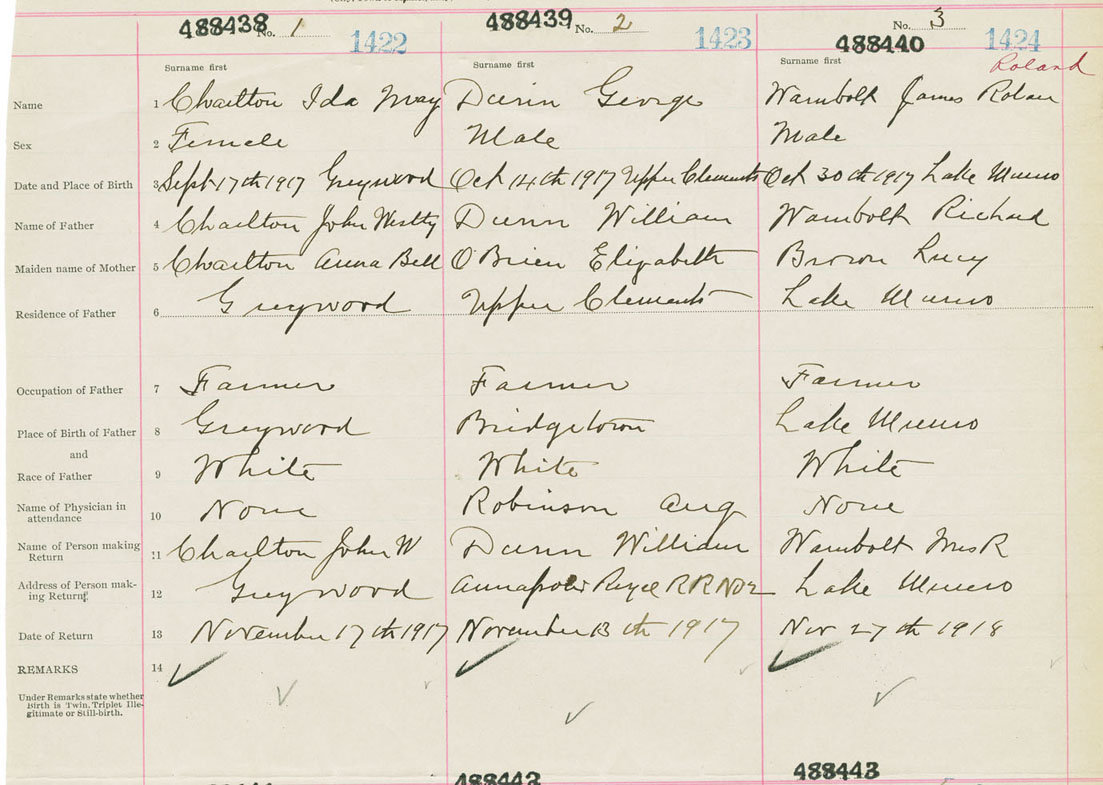 488438 No. 1 1422 488439 No. 2 1423 488440 No. 3 1424
Surname first Surname first Surname first Roland
Name 1 Charlton Ida May Dunn George Wambolt James Rolan
Sex 2 Female Male Male
Date and Place of Birth 3 Sept 17th 1917 Greywood Oct 14th 1917 Upper Clements Oct 30th 1917 Lake Munro
Name of Father 4 Charlton John Dunn William Wambolt Richard
Maiden name of Mother 5 Charlton Anna Bell O'Brien Elizabeth Brown Lucy
Residence of Father 6 Greywood Upper Clements Lake Munro
Occupation of Father 7 Farmer Farmer Farmer
Place of Birth of Father 8 Greywood Bridgetown Lake Munro
and
Race of Father 9 White White White
Name of Physician in
attendance 10 None Robinson Aug None
Name of Person making
Return 11 Charlton John W Dunn William Wambolt Mrs R
Address of Person mak-
ing Return 12 Greywood Annapolis Royal R R No 2 Lake Munro
Date of Return 13 November 17th 1917 November 13th 1917 Nov 27th 1918
REMARKS 14
Under Remarks state whether
Birth is Twin, Triplet Ille-
gitimate or Still-birth.
488443 488443